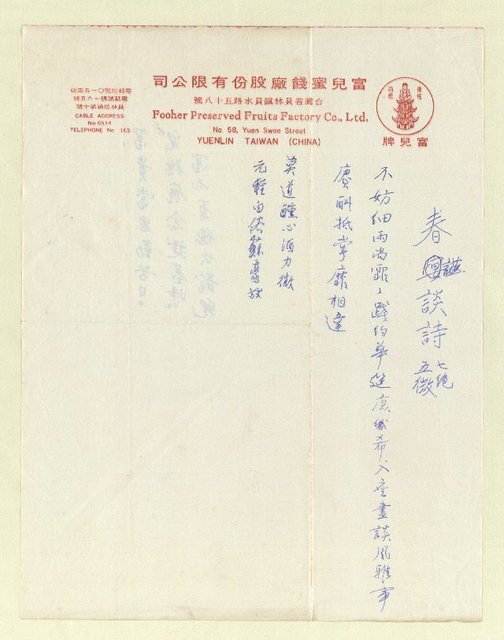 富兒蜜餞廠股份有限公司
台灣省員林鎮員水路五十八號
Fooher Preserved Fruits Factory Co., Ltd.
No 58, Yuen Swee Street
YUENLIN TAIWAN (CHINA)
富兒牌
電話號碼一六五號
CABLE ADDRESS
No 0514
TELEPHONE No 165
春讌談詩 七絕 五微
不妨細雨尚霏〻踐約華筵幾希入座盡談風雅事
賡酬抵掌靡相違
莫道醺心酒力微
元輕白俗蘇豪放